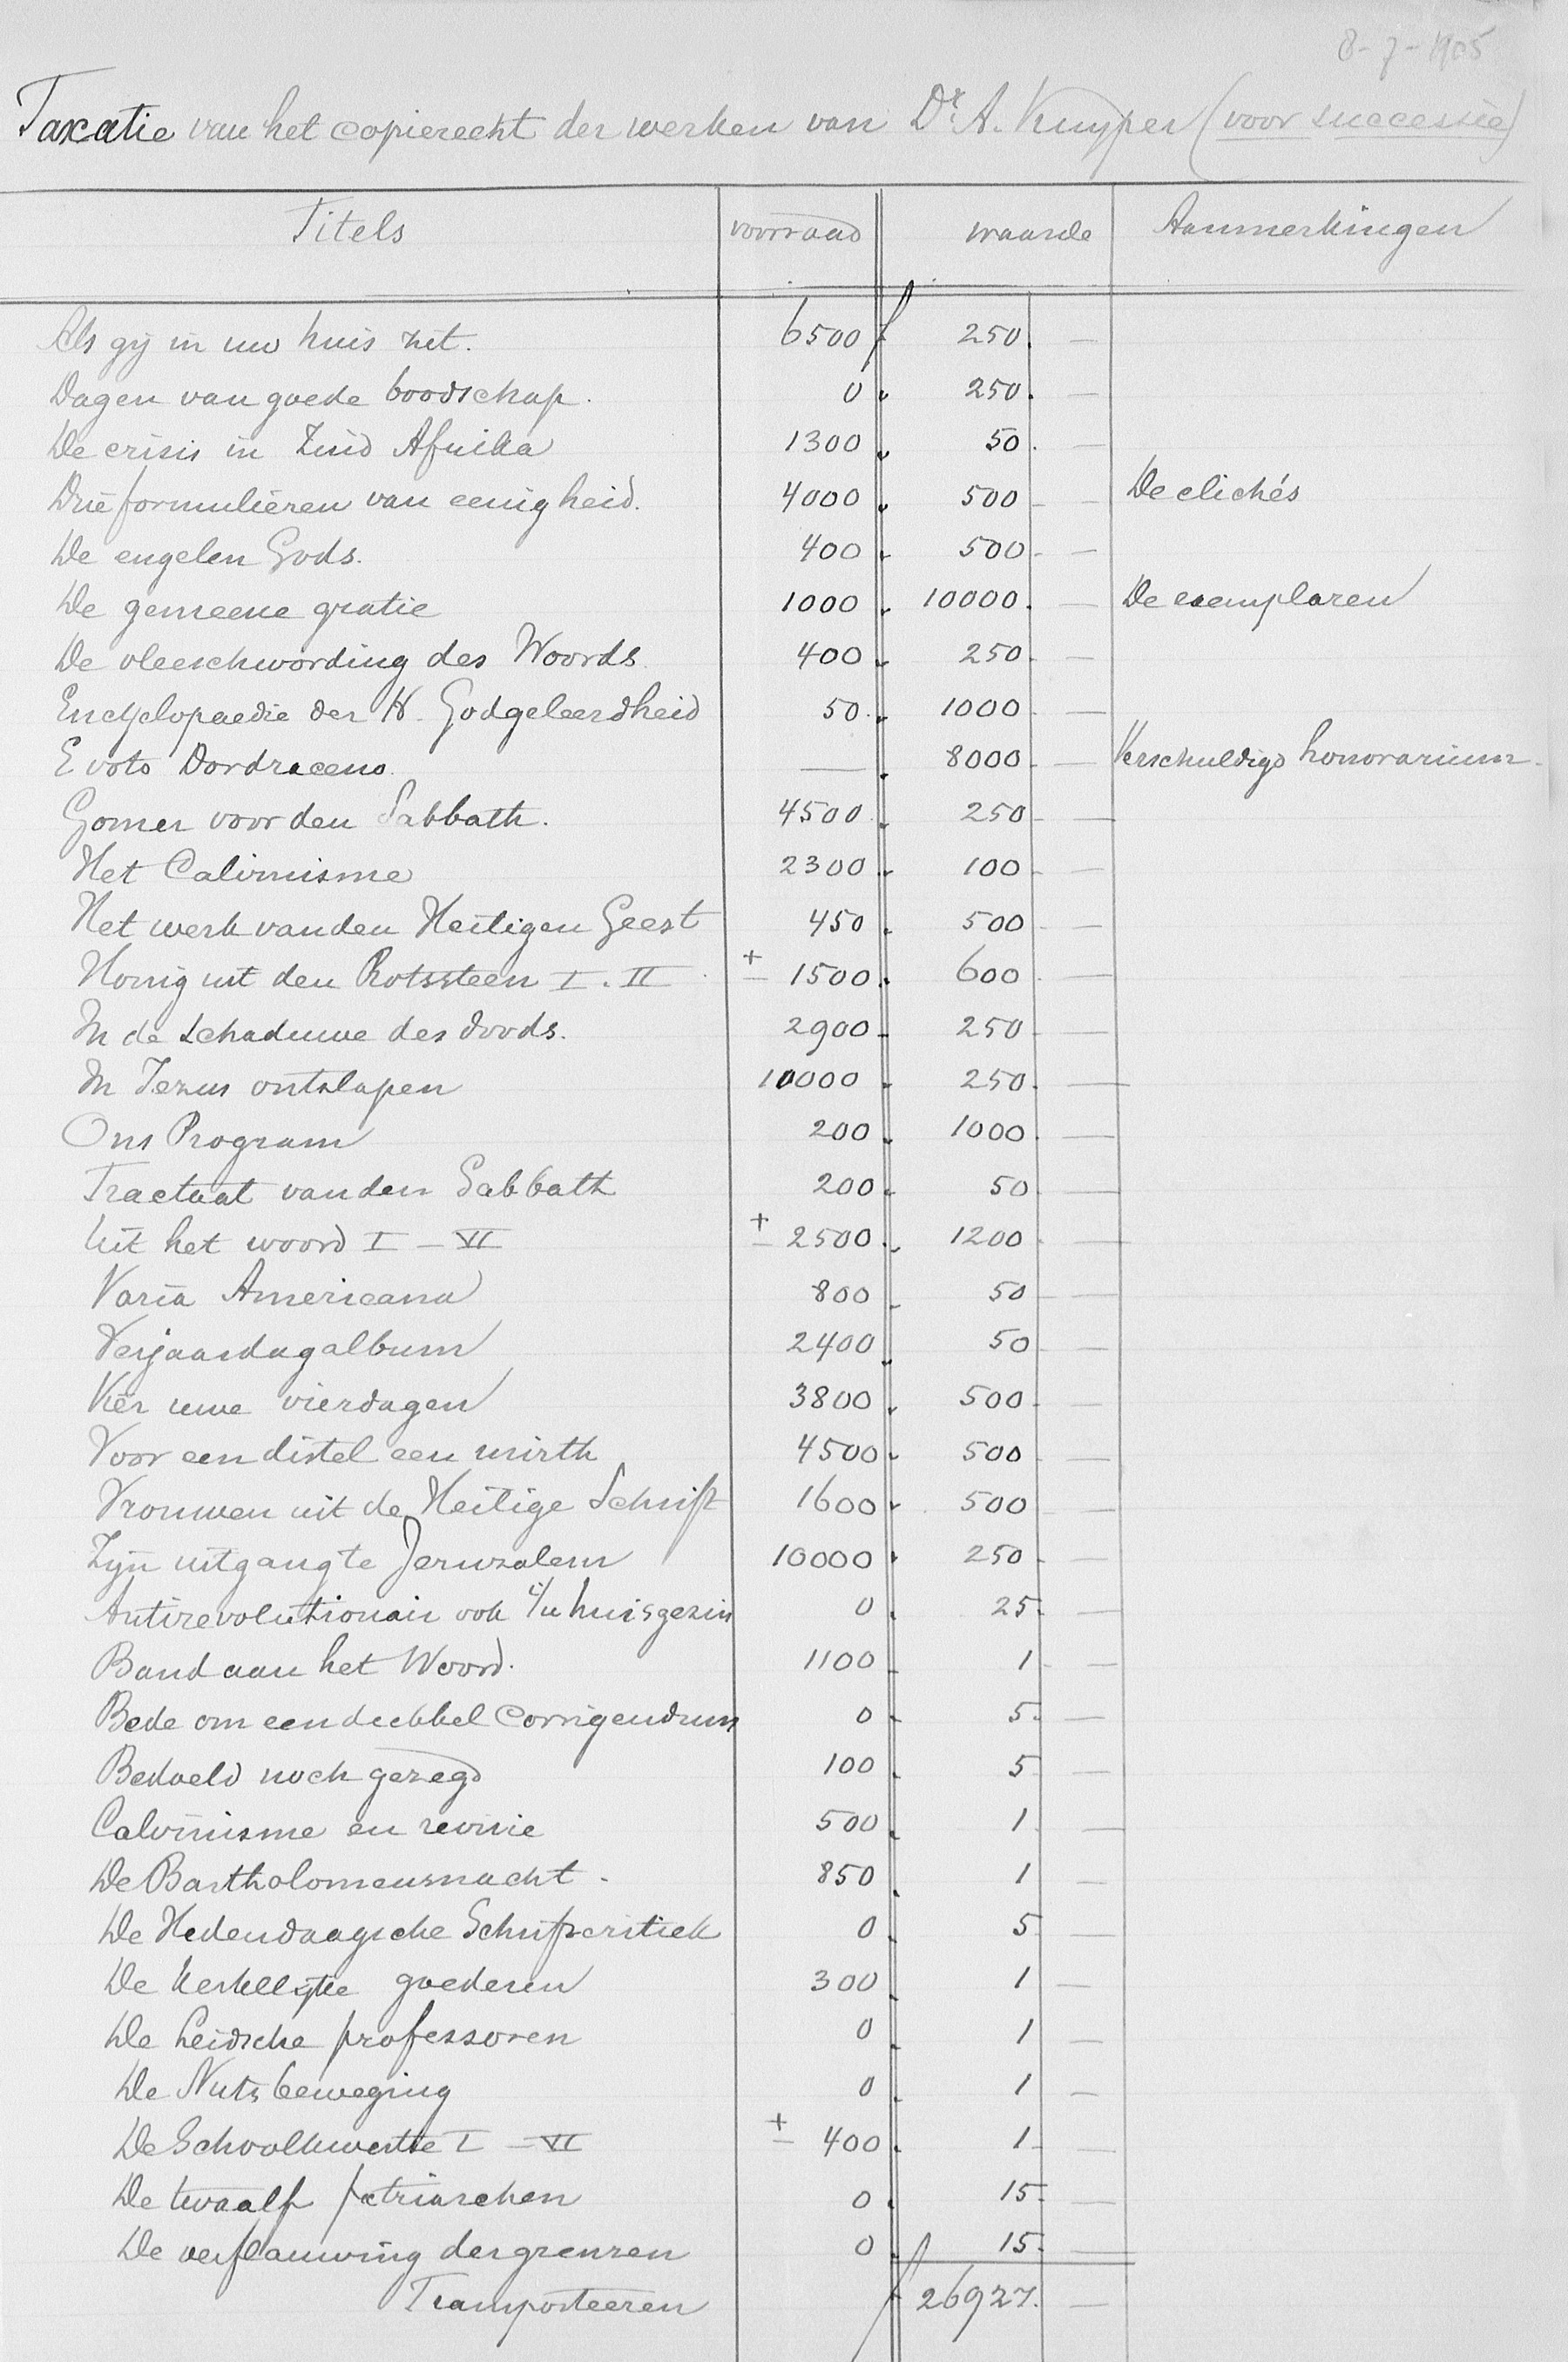 8-7-1905
Taxatie van het copierecht der werken van Dr. A. Kuyper (voor successie)
Titels voorraad waarde Aanmerkingen
Als gij in uw huis zit. 6500 f 250. —
Dagen van goede boodschap. 0 „ 250. —
De crisis in Zuid Afrika 1300 „ 50. —
Drie formulieren van eenigheid. 4000 „ 500 — De clichés
De engelen Gods. 400 „ 500 —
De gemeene gratie 1000 „ 10000. — De exemplaren
De vleeschwording des Woords 400 „ 250. —
Encyclopaedie der H. Godgeleerdheid 50 „ 1000 —
E voto Dordraceno. — „ 8000 — Verschuldigd honorarium
Gomer voor den Sabbath. 4500 „ 250 —
Het Calvinisme 2300 „ 100 —
Het werk van den Heiligen Geest 450 „ 500 —
Honig uit den Rotssteen I. II ± 1500 „ 600 —
In de schaduwe des doods. 2900 „ 250 —
In Jezus ontslapen 10000 „ 250. —
Ons Program 200 „ 1000 —
Tractaat van den Sabbath 200 „ 50 —
Uit het woord I – VI ± 2500 „ 1200 —
Varia Americana 800 „ 50 —
Verjaardagalbum 2400 „ 50 —
Vier uwe vierdagen 3800 „ 500 —
Voor een distel een mirth 4500 „ 500 —
Vrouwen uit de Heilige Schrift 1600 „ 500 —
Zijn uitgang te Jeruzalem 10000 „ 250 —
Antirevolutionair ook i/u huisgezin 0 „ 25. —
Band aan het Woord. 1100 „ 1 —
Bede om een dubbel Corrigendum 0 „ 5. —
Bedoeld noch gezegd 100 „ 5 —
Calvinisme en revisie 500 „ 1 —
De Bartholomeusnacht. 850 „ 1 —
De Hedendaagsche Schriftcritiek 0 „ 5 —
De kerkelijke goederen 300 „ 1 —
De Leidsche professoren 0 „ 1 —
De Nutsbeweging 0 „ 1 —
De Schoolkwestie I – VI ± 400 „ 1 —
De twaalf patriarchen 0 „ 15. —
De verflauwing der grenzen 0 „ 15. —
Transporteeren f 26927. —